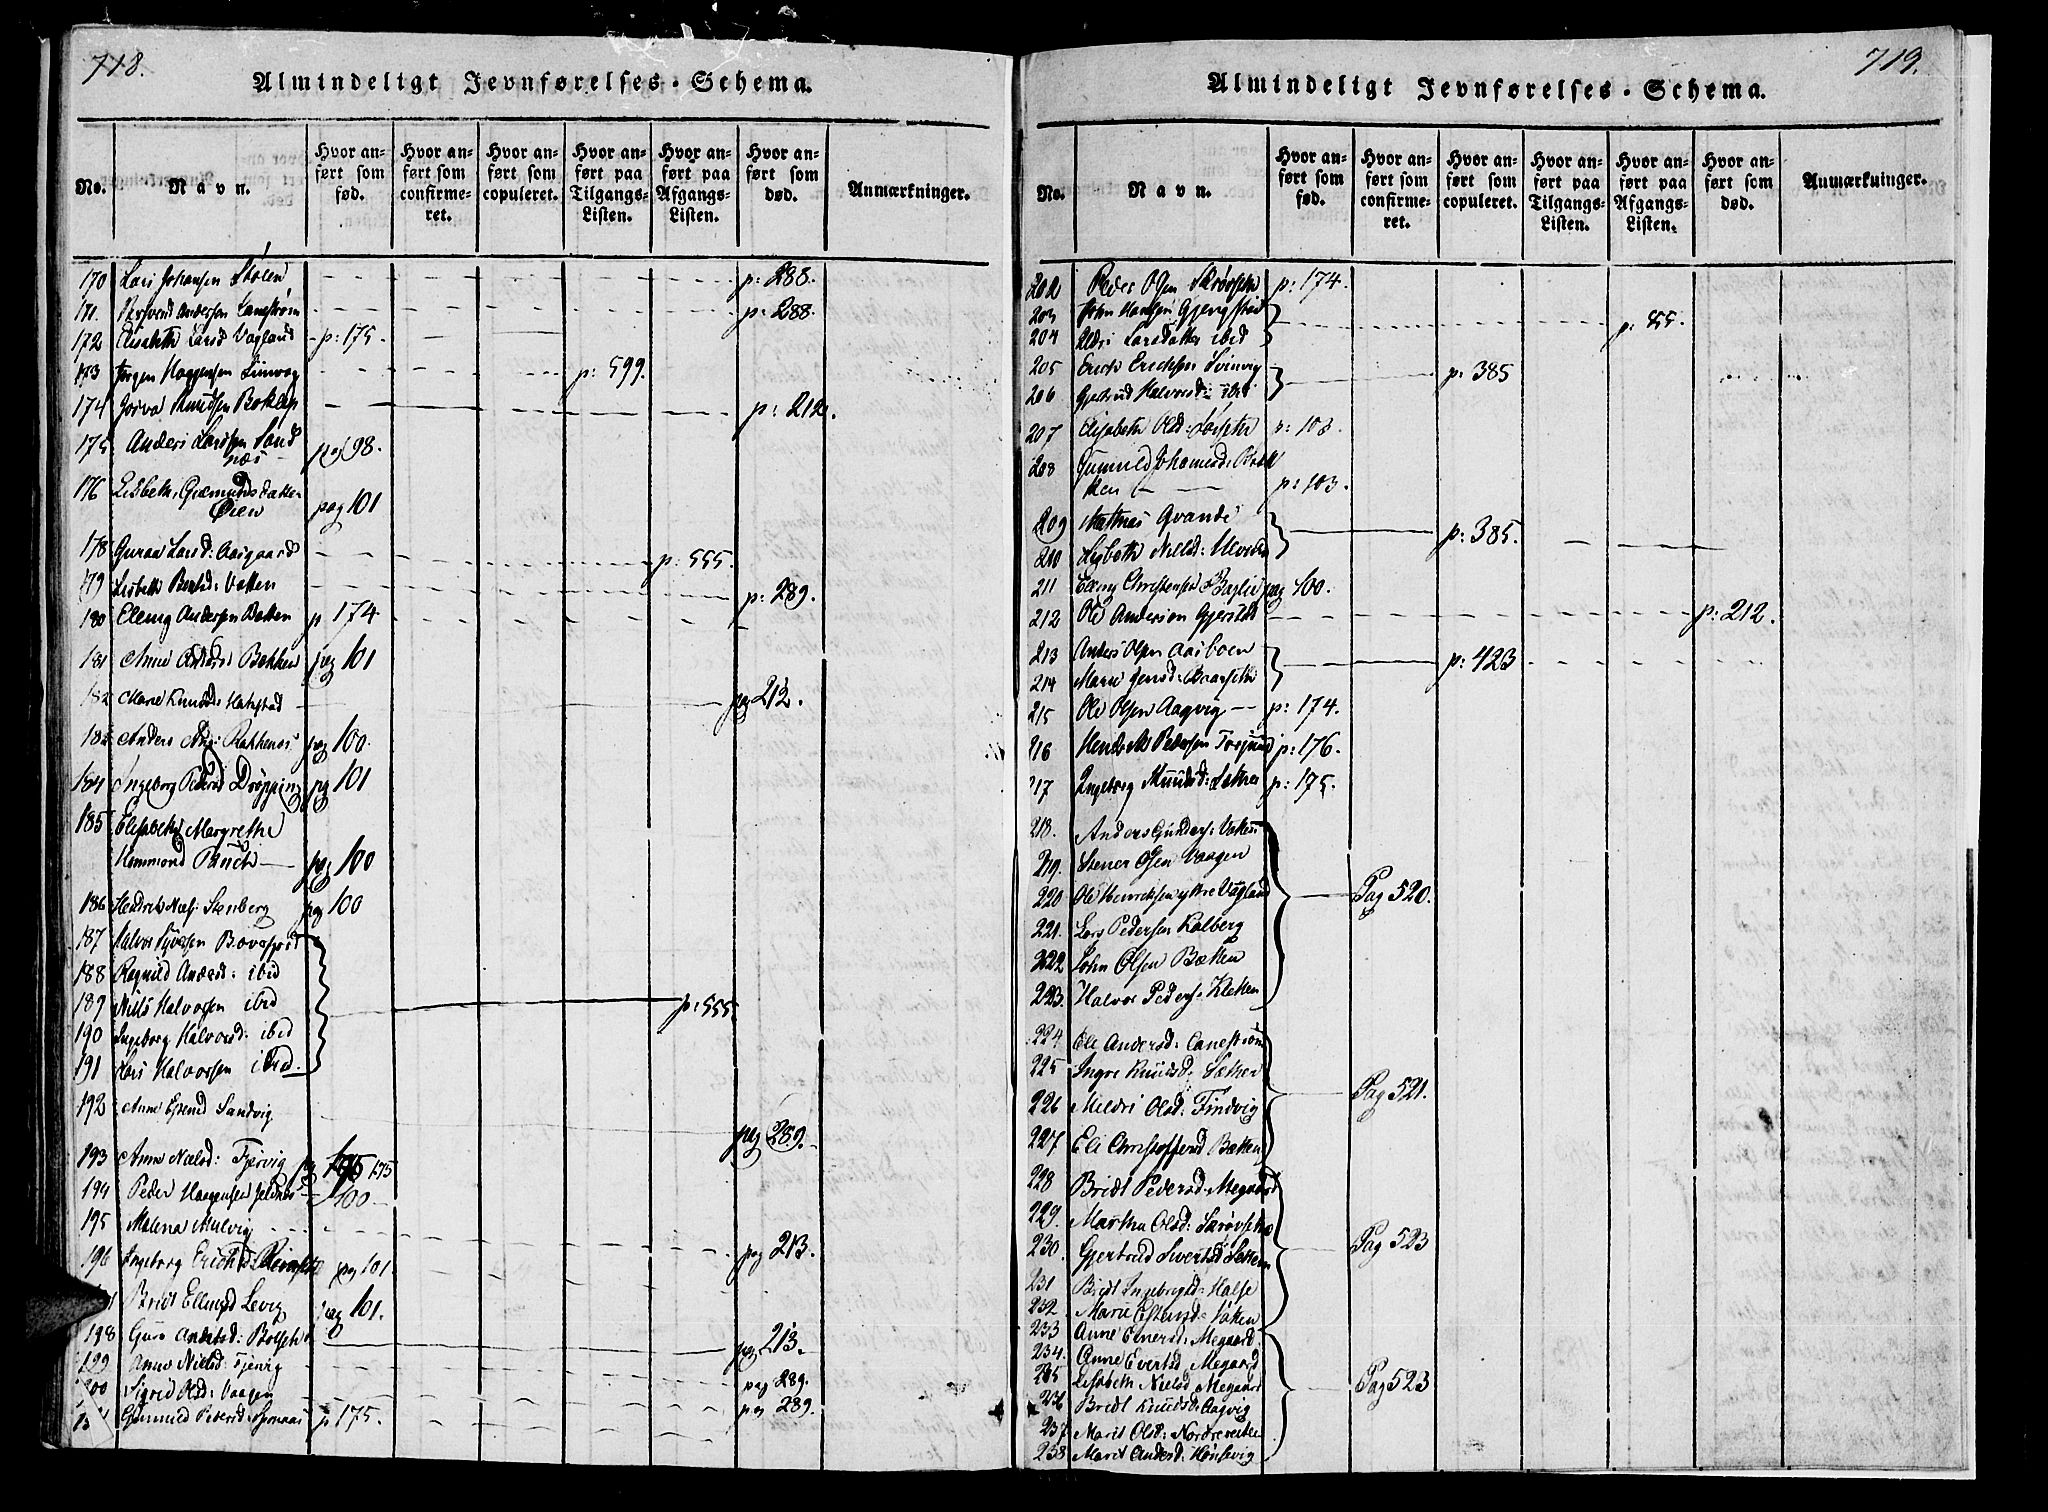 718.
Almindeligt Jevnførelses-Schema.
No.
Navn.
Hvor anført som fød.
Hvor anført som confirmeret.
Hvor anført som copuleret.
Hvor anført paa Tilgangs-Listen.
Hvor anført paa Afgangs-Listen.
Hvor anført som død.
Anmærkninger.
170 Lars Johansen Stølen p: 288.
171. Andersen Canestrøm p: 288.
172 Elisabeth Larsd Vagland p: 175.
173 Jørgen p: 599.
174 Knudsen p: 212.
175 Anders Larssen Sand
næs pag 98.
176 Lisbeth Gudmundsdatter
Øien pag 101
178 Guraa Larsd: Aasgaard p: 555.
179 Lisbeth Berntsd: Vatten p: 289.
180 Elling Andersen Batten p 174
181 Anne Bekken pag 101
182 Marie Knudsd: Hatestad pag 212.
183 Anders And: Rakkenæs pag 100.
184 Ingeborg Pedersd Drøpping pag 101
185 Elisabeth Margrethe
Hammond Panch pag 100
186 Hendrik Niels: Stenberg pag 100
187 Halvor Syversen
188 Ragnild Andersd: ibid
189 Niels Halvorsen ibid p: 555.
190 Ingeborg Halvorsd: ibid
191 Lars Halvorsen ibid.
192 Anne Sandvig pag 289.
193 Anne Nielsd: Fjærvig pag 175
194 Peder Haagensen 100
195 Malena Mulvig pag 213.
196 Ingeborg Erichsd pag 101.
Bridt Ellingsd Levig pag 101.
198 Guro Andersd: Bolseth pag 213.
199 Anne Nielsd: Fjervig pag 289.
200 Sigrid Olsd: Vaagen pag 289.
Gunnild Pedersd: p 175.
719.
Almindeligt Jevnførelses-Schema.
No.
Navn.
Hvor anført som fød.
Hvor anført som confirmeret.
Hvor anført som copuleret.
Hvor anført paa Tilgangs-Listen.
Hvor anført paa Afgangs-Listen.
Hvor anført som død.
Anmærkninger.
202 Peder Olsen Skrøvseth p: 174.
203 John Hansen Gjengstad
204 Larsdatter ibid p: 555.
205 Erich Erichsen Svinvig p: 385
206 Gjertrud Halvorsd: ibid
207 Elisabeth Olsd: p: 103.
208 Gunnild Johannesd: Bak
ken p: 103.
209 Mathias Qvande p: 385.
210 Lisbeth Nielsd:
211 Elling Christensen pag 100.
212 Ole Andersen Gjerstad p: 212.
213 Anders Olsen Aasboen p: 423
214 Marie Jensd: Baarseth
215 Ole Olsen Aagvig p: 174.
216 Hendrik Pedersen p: 176.
217 Ingeborg Knudsd: Sæther p: 175.
218. Anders Gunders: Vatten
219. Stener Olsen Vaagen
220 Ole Henrichsen ytre Vagland Pag 520.
221. Lars Pedersen Kalberg
222 John Olsen Bætten
223. Halvor Peders: Kletten
224 Eli Andersd: Canestrøm
225 Ingre Knudsd: Sæther
226 Mildri Olsd: Findvig Pag 521.
227 Eli Christoffersd Bætten
228 Bridt Pedersd: Megaard
229. Martha Olsd: Skrøvseth
230. Gjertrud Sivertsd Settem Pag 523
231 Bridt Ingebrigtsd: Halse
232 Marie Vatten
233 Anne Einersd: Megaard.
234. Anne Evertsd Megaard
235 Lisabeth Nielsd Megaard Pag 523
236 Bridt Knudsd: Aagvig
237 Marit Olsd: Nordre
238 Marit Andersd: Henesvig